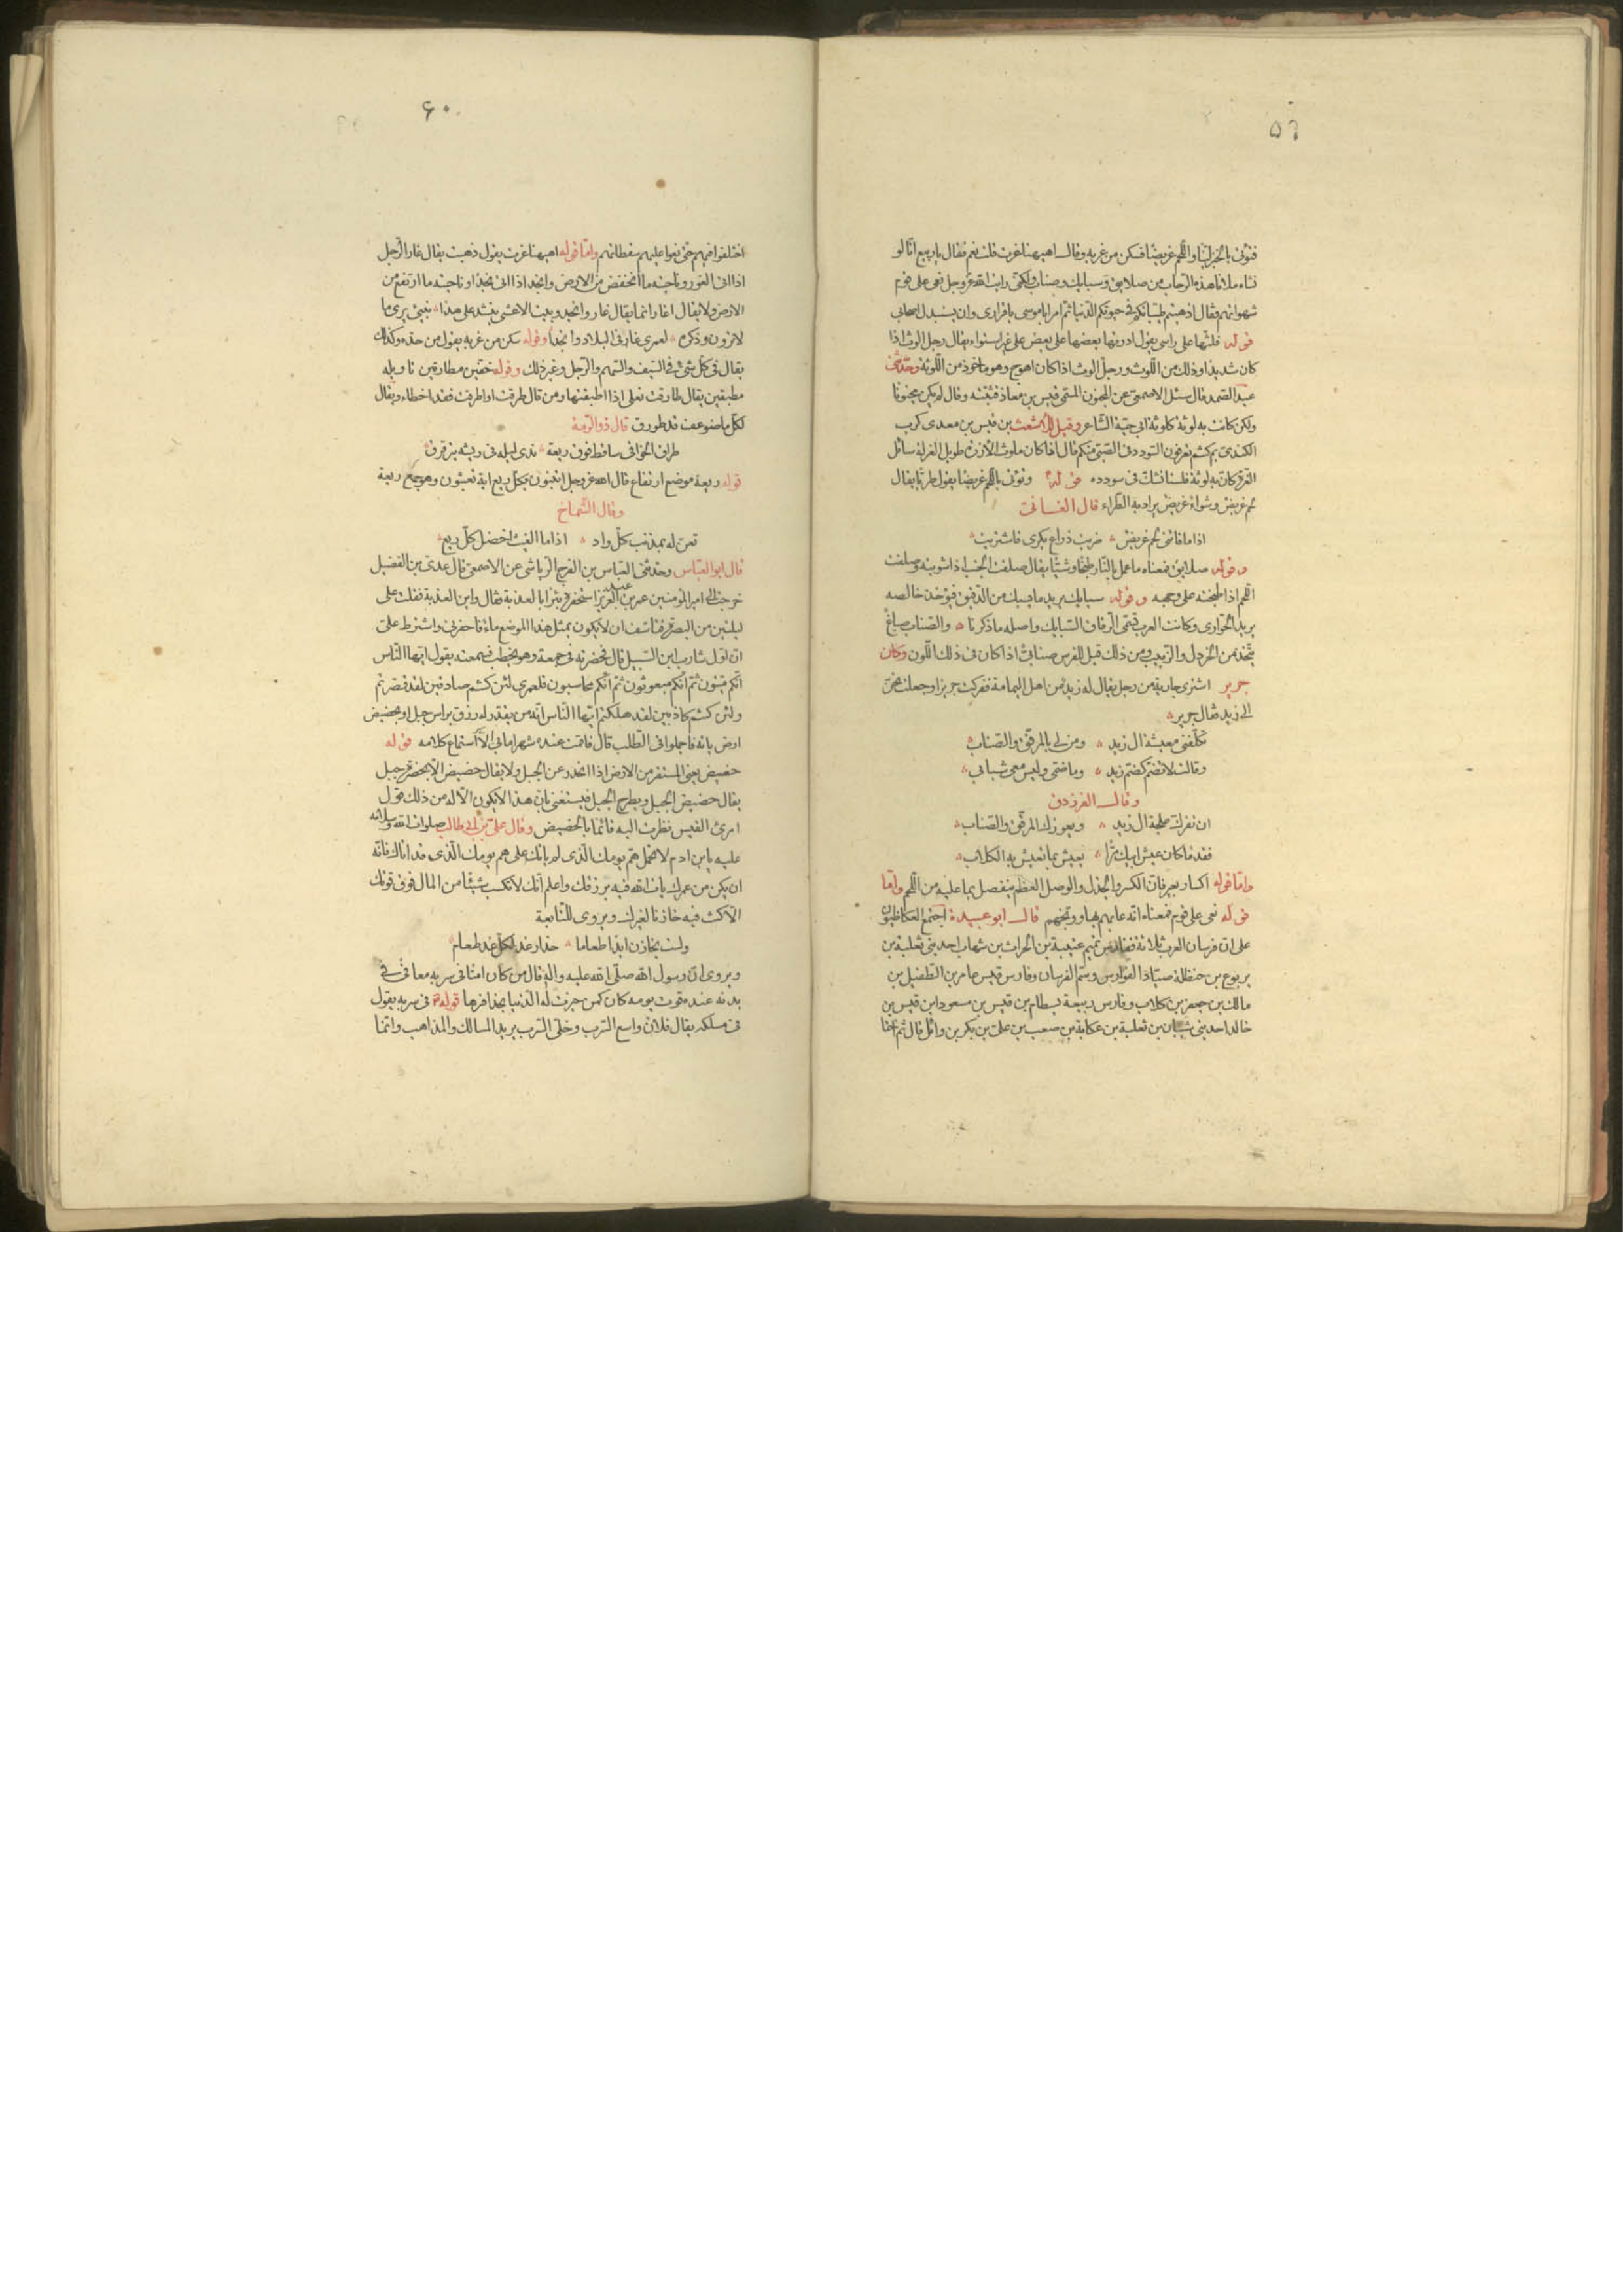 ٥٩
فنؤتى بالخبز لينا واللحم غريضا فسكن من غربه وقال اههنا غرت قلت نعم فقال يا ربيع انا لو
نشاء ملأنا هذه الرحاب من صلايق وسبايك وصناب ولكنى رايت الله عز وجل نعى على قوم
شهواتهم فقال اذهبتم طيباتكم فى حيوتكم الدنيا ثم امر ابا موسى باقرارى وان يستبدل اصحابى
قوله فلثتها على راسى يقول ادرتها بعضها على بعض على غير استواء يقال رجل الوث اذا
كان شديدا وذلك من اللوث ورجل الوث اذا كان اهوج وهو ماخوذ من اللوثة وحدثنى
عبد الصمد قال سئل الاصمعى عن المجنون المسمى قيس بن معاذ فثبته وقال لم يكن مجنونا
ولكن كانت به لوثة كلوثة ابى حية الشاعر وقيل للاشعث بن قيس بن معدى كرب
الكندى بم كنتم تعرفون السودد فى الصبى منكم قال اذا كان ملوث الازرة طويل الغرلة سائل
الغرة كان به لوثة فلسنا نشك فى سودده قوله ونؤتى باللحم غريضا يقول طريا يقال
لحم غريض وشواء غريض يراد به الطراء قال الغسانى
اذا ما فاتنى لحم غريض ضربت ذراع بكرى فاشتويت
وقوله صلايق فمعناه ما عمل بالنار طبخا وشيا يقال صلقت الجنب اذا شويته وصلقت
اللحم اذا طبخته على وجهه وقوله سبايك يريد ما يسبك من الدقيق فيؤخذ خالصه
يريد الحوارى وكانت العرب تسمى الرقاق السبايك واصله ما ذكرنا والصناب صباغ
يتخذ من الخردل والزبيب ومن ذلك قيل للفرس صنابى اذا كان فى ذلك اللون وكان
جرير اشترى جارية من رجل يقال له زيد من اهل اليمامة ففركت جريرا وجعلت تحن
الى زيد فقال جرير
تكلفنى معيشة ال زيد ومن لى بالمرقق والصناب
وقالت لا تضم كضم زيد وما ضمى وليس معى شبابى
وقال الفرزدق
ان تفركك علجة ال زيد ويعوزك المرقق والصناب
فقد ما كان عيش ابيك مرا يعيش بما تعيش به الكلاب
واما قوله اكسار بعير فان الكسر والجذل والوصل العظم ينفصل بما عليه من اللحم واما
قوله نعى على قوم فمعناه انه عابهم بها ووبخهم قال ابو عبيدة اجتمع العكاظيون
على ان فرسان العرب ثلاثة ففارس تميم عتيبة بن الحراث بن شهاب احد بنى ثعلبة بن
يربوع بن حنظلة صياد الفوارس وسم الفرسان وفارس قيس عامر بن الطفيل بن
مالك بن جعفر بن كلاب وفارس ربيعة بسطام بن قيس بن مسعود ابن قيس بن
خالد احد بنى شيبان بن ثعلبة بن عكابة بن صعب بن على بن بكر بن وائل قال ثم
٦٠
اختلفوا فيهم حتى نعوا عليهم سقطاتهم واما قوله اههنا غرت يقول ذهبت يقال غار الرجل
اذا اتى الغور وناحيته مما انخفض من الارض وانجد اذا اتى نجدا وناحيته مما ارتفع من
الارض ولا يقال اغار انما يقال غار وانجد وبيت الاعشى ينشد على هذا نبيى يرى ما
لا ترون وذكره لعمرى غار فى البلاد وانجدا وقوله سكن من غربه يقول من حده وكذلك
يقال فى كل شئ فى السيف والسهم والرجل وغير ذلك وقوله خفين مطارقين تاويله
مطبقين يقال طارقت نعلى اذا اطبقتها ومن قال طرقت او اطرقت فقد اخطاء ويقال
لكل ما ضوعف قد طورق قال ذو الرمة
طراق الخوافى ساقط فوق ريعة ندى ليله فى ريشه يترقرق
قوله ريعة موضع ارتفاع قال الله عز وجل اتبنون بكل ريع اية تعبثون وهو جمع ريعة
وقال الشماخ
تعن له بمذنب كل واد اذا ما الغيث اخضل كل ريع
قال ابو العباس وحدثنى العباس بن الفرج الرياشى عن الاصمعى قال عدى بن الفضيل
خرجت الى امير المؤمنين عمر بن عبد العزيز استحفره بئرا بالعذبة فقال واين العذبة فقلت على
ليلتين من البصرة فتاسف ان لا يكون بمثل هذا الموضع ماء فاحفرنى واشترط على
ان اول شارب ابن السبيل قال فحضرته فى جمعة وهو يخطب فسمعته يقول ايها الناس
انكم ميتون ثم انكم مبعوثون ثم انكم محاسبون فلعمرى لئن كنتم صادقين لقد قصرتم
ولئن كنتم كاذبين لقد هلكتم ايها الناس انه من يقدر له رزق براس جبل او بحضيض
ارض ياته فاجملوا فى الطلب قال فاقمت عنده شهرا مابى الا استماع كلامه قوله
حضيض يعنى المستقر من الارض اذا انحدر عن الجبل ولا يقال حضيض الا بحضرة جبل
يقال حضيض الجبل وبطرح الجبل فيستغنى بان هذا لا يكون الا له من ذلك قول
امرئ القيس نظرت اليه قائما بالحضيض وقال على بن ابى طالب صلوات الله وسلامه
عليه يا بن ادم لا تحمل هم يومك الذى لم ياتك على هم يومك الذى قد اتاك فانه
ان يكن من عمرك يات الله فيه برزقك واعلم انك لا تكسب شيئا من المال فوق قوتك
الا كنت فيه خازنا لغيرك ويروى للنابغة
ولست بخازن ابدا طعاما حذار غد لكل غد طعام
ويروى ان رسول الله صلى الله عليه واله قال من كان امنا فى سربه معافى فى
بدنه عنده قوت يومه كان كمن حيزت له الدنيا بحذافرها قوله فى سربه يقول
فى مسلكه يقال فلان واسع السرب وخلى السرب يريد المسالك والمذاهب وانما